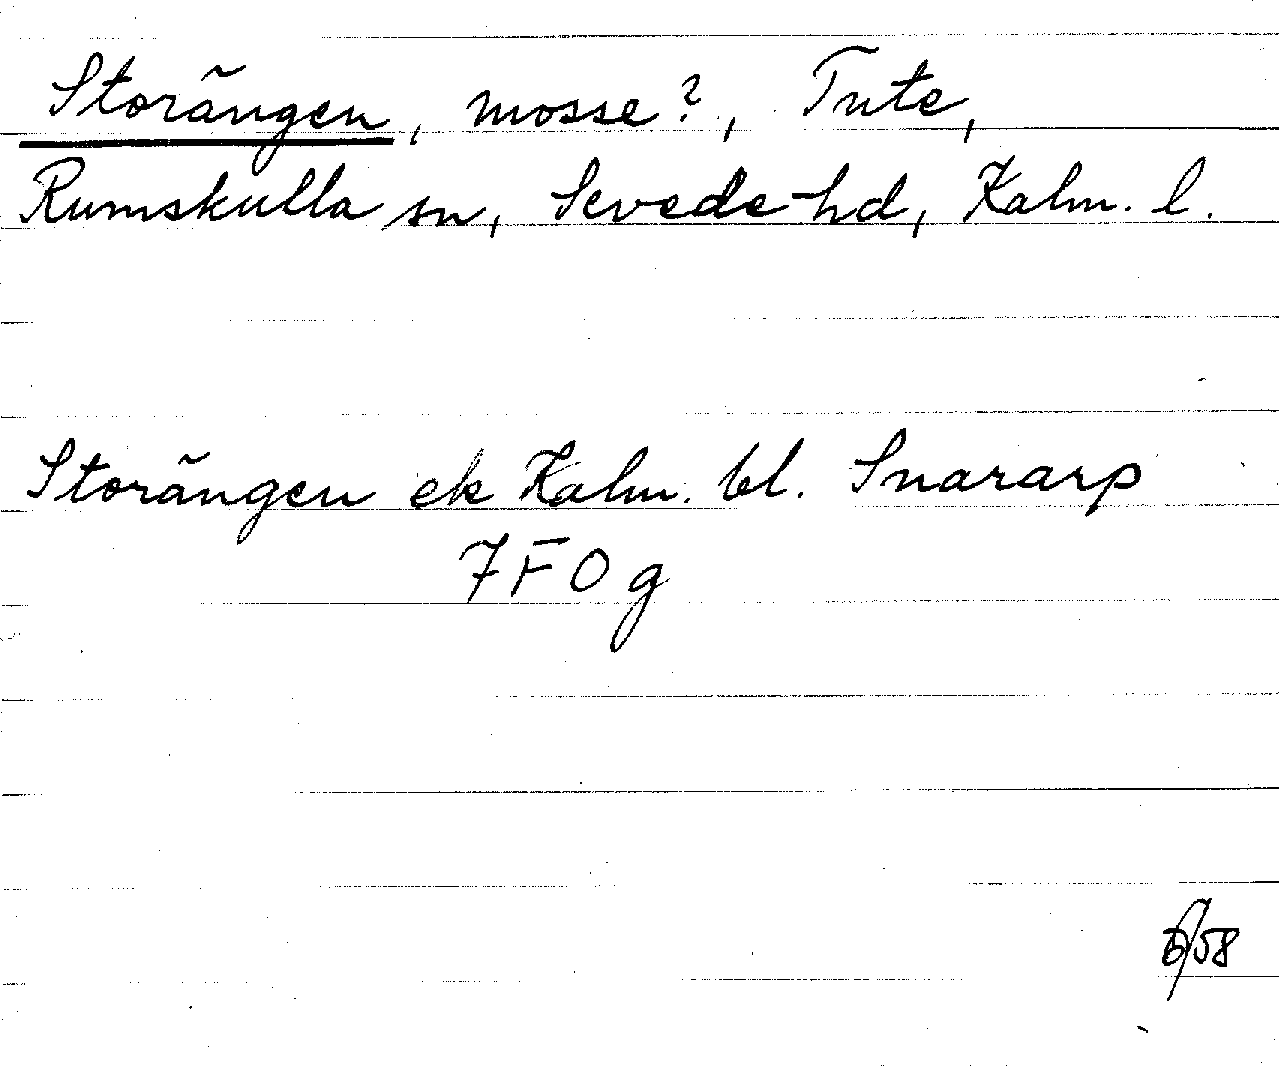 Storängen, mosse?, Tute,
Rumskulla sn, Sevede hd, Kalm. l.
Storängen ek Kalm. bl. Snararp
7F0g